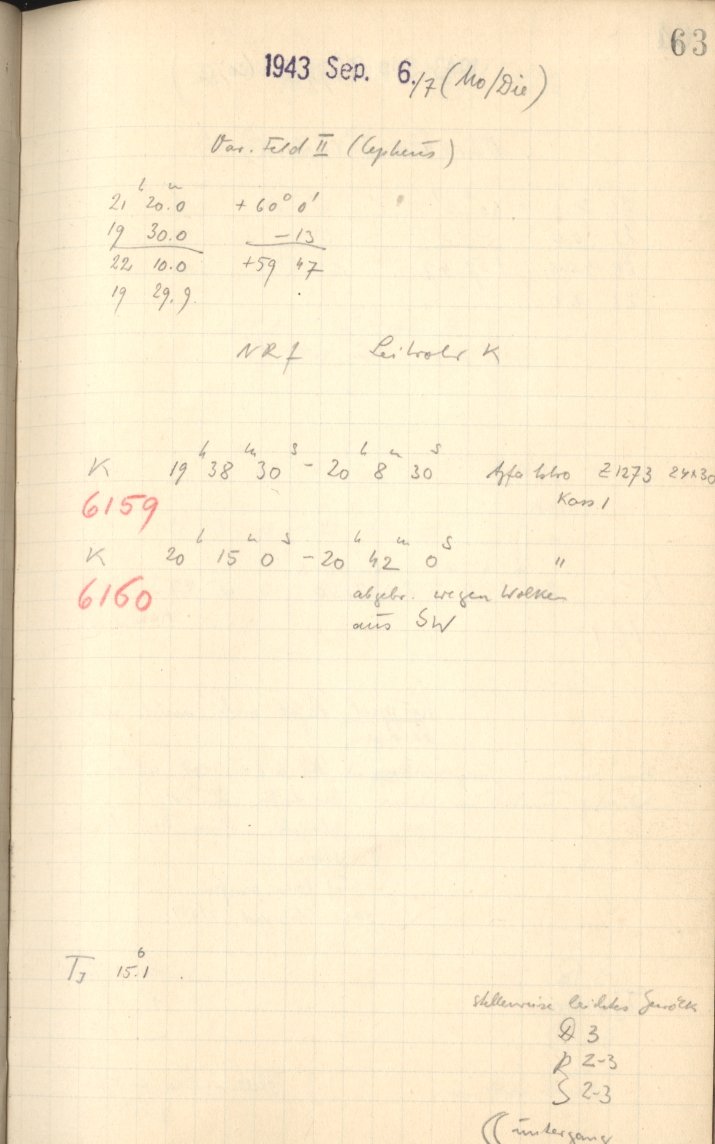 63
1943 Sep. 6./7 (Mo/Die)
Var. Feld II (Cepheus)
21 h 20.0 m +60° 0'
19 30.0 -13
22 10.0 +59 47
19 29.9
NRf Leitrohr K
K 19 h 38 m 30 s - 20 h 8 m 30 s Agfa Astro Z1273 24x30
Kass 1
6159
K 20 h 15 m 0 s - 20 h 42 m 0 s "
6160
abgebr. wegen Wolken
aus SW
TJ 15.1
stellenweise leichtes Gewölk
D 3
R 2-3
S 2-3
untergang